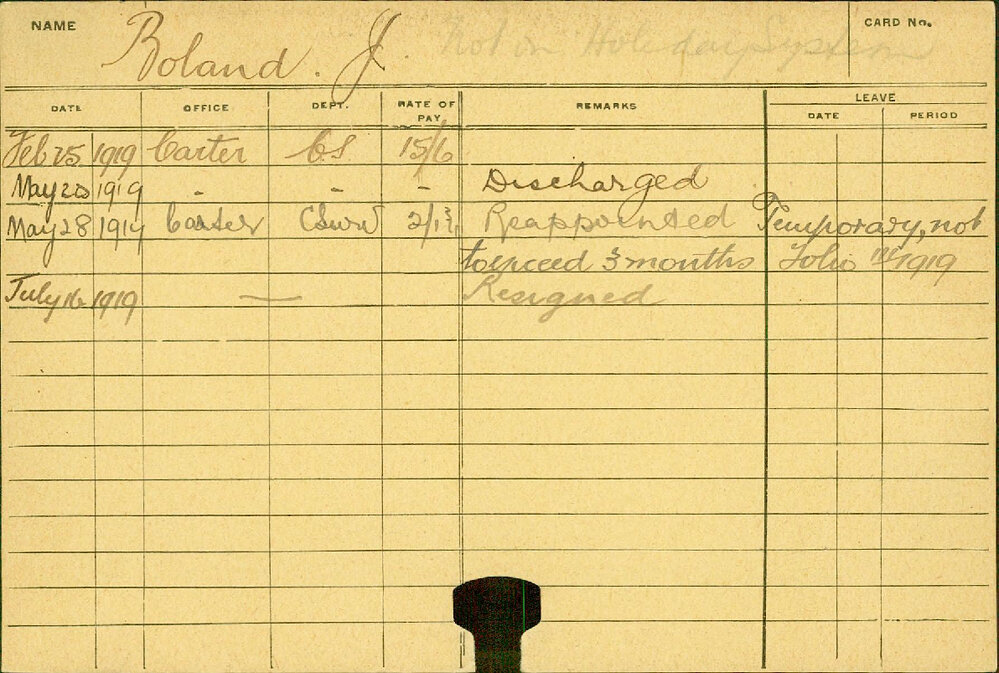 NAME Boland. J. Not on Holiday System CARD No.
LEAVE
DATE OFFICE DEPT. RATE OF PAY REMARKS DATE PERIOD
Feb 25 1919 Carter CS 15/6
May 20 1919 - - - Discharged
May 28 1919 Carter Reappointed Temporary, not
to exceed 3 months Folio 1919
July 16 1919 — Resigned